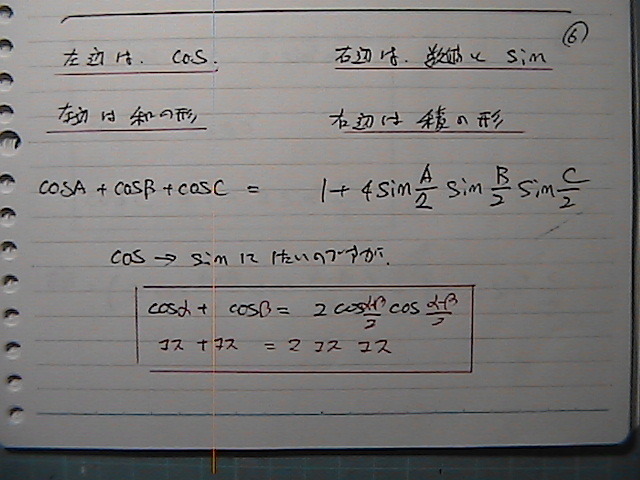 ⑥
左辺は. cos. 右辺は. 数値と sin
左辺は和の形 右辺は積の形
cosA + cosB + cosC = 1 + 4 sin A/2 sin B/2 sin C/2
cos → sin にしたいのですが.
cosα + cosβ = 2 cos α+β/2 cos α-β/2
コス + コス = 2 コス コス